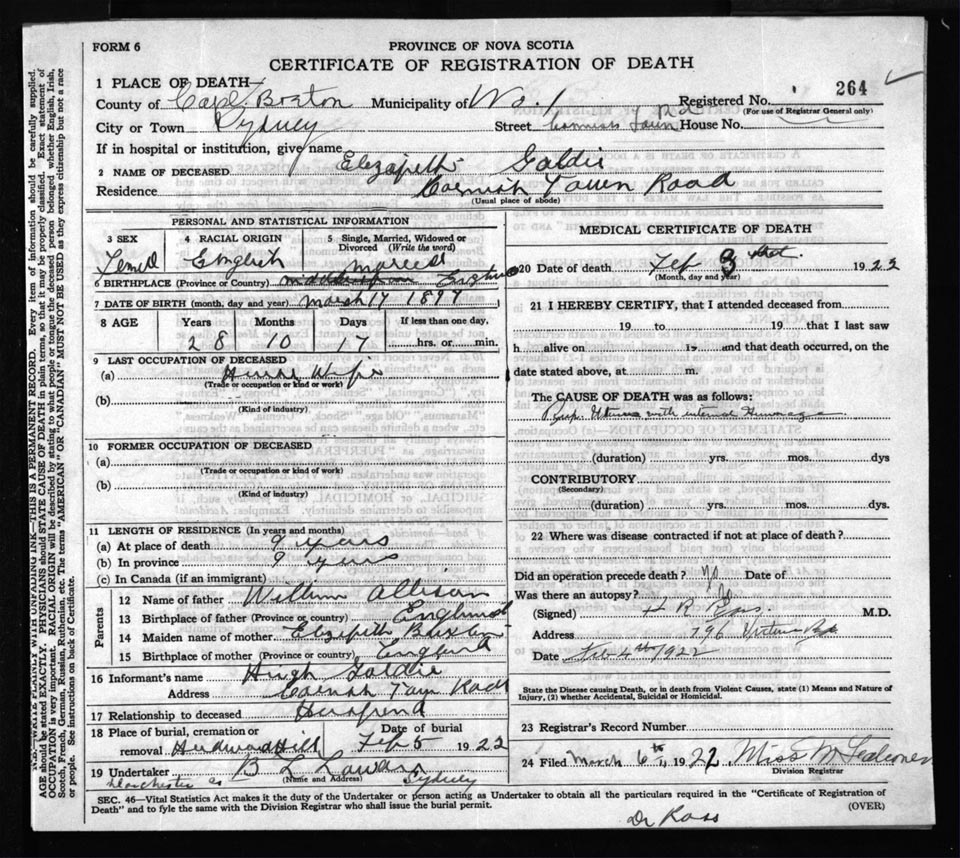 FORM 6
PROVINCE OF NOVA SCOTIA
CERTIFICATE OF REGISTRATION OF DEATH
264
1 PLACE OF DEATH
County of Cape Breton Municipality of No. 1 Registered No.
(For use of Registrar General only)
City or Town Sydney Street Cornish Town Rd House No.
If in hospital or institution, give name
2 NAME OF DECEASED Elezapeth Goldie
Residence Cornish Town Road
(Usual place of abode)
PERSONAL AND STATISTICAL INFORMATION
3 SEX 4 RACIAL ORIGIN 5 Single, Married, Widowed or Divorced (Write the word)
English Marred
6 BIRTHPLACE (Province or Country)
7 DATE OF BIRTH (month, day and year) March 17
8 AGE Years Months Days If less than one day,
28 10 17 hrs. or min.
9 LAST OCCUPATION OF DECEASED
(a) House Wife
(Trade or occupation or kind of work)
(b)
(Kind of industry)
10 FORMER OCCUPATION OF DECEASED
(a)
(Trade or occupation or kind of work)
(b)
(Kind of industry)
11 LENGTH OF RESIDENCE (In years and months)
(a) At place of death 9 years
(b) In province 9 years
(c) In Canada (if an immigrant)
Parents
12 Name of father William Allison
13 Birthplace of father (Province or country) England
14 Maiden name of mother Elizabeth
15 Birthplace of mother (Province or country) England
16 Informant's name Hugh Goldie
Address Cornish Town Road
17 Relationship to deceased
18 Place of burial, cremation or removal Date of burial
Hardwood Hill Feb 5 1922
19 Undertaker B L
(Name and Address)
Sydney
MEDICAL CERTIFICATE OF DEATH
20 Date of death Feb 3 1922
(Month, day and year)
21 I HEREBY CERTIFY, that I attended deceased from
19 to 19 that I last saw
h alive on 19 and that death occurred, on the
date stated above, at m.
The CAUSE OF DEATH was as follows:
Uterus with internal
(duration) yrs. mos. dys
CONTRIBUTORY
(Secondary)
(duration) yrs. mos. dys
22 Where was disease contracted if not at place of death?
Did an operation precede death? No Date of
Was there an autopsy?
(Signed) H R Ross M.D.
Address 796 Victoria Rd
Date Feb 4th/1922
State the Disease causing Death, or in death from Violent Causes, state (1) Means and Nature of
Injury, (2) whether Accidental, Suicidal or Homicidal.
23 Registrar's Record Number
24 Filed March 6th 1922 Miss M
Division Registrar
SEC. 46—Vital Statistics Act makes it the duty of the Undertaker or person acting as Undertaker to obtain all the particulars required in the "Certificate of Registration of
Death" and to fyle the same with the Division Registrar who shall issue the burial permit.
(OVER)
Dr Ross
WRITE PLAINLY WITH UNFADING INK—THIS IS A PERMANENT RECORD. Every item of information should be carefully supplied.
AGE should be stated EXACTLY. PHYSICIANS should STATE CAUSE OF DEATH in plain terms, so that it may be properly classified. Exact statement of
OCCUPATION is very important. RACIAL ORIGIN will be described by stating to what people or tongue the deceased person belonged whether English, Irish,
Scotch, French, German, Russian, Ruthenian, etc. The terms "AMERICAN" OR "CANADIAN" MUST NOT BE USED as they express citizenship but not a race
or people. See instructions on back of Certificate.